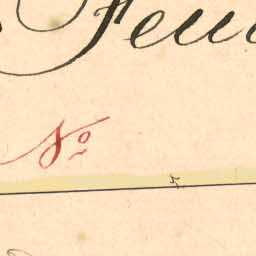 Feui
Nº